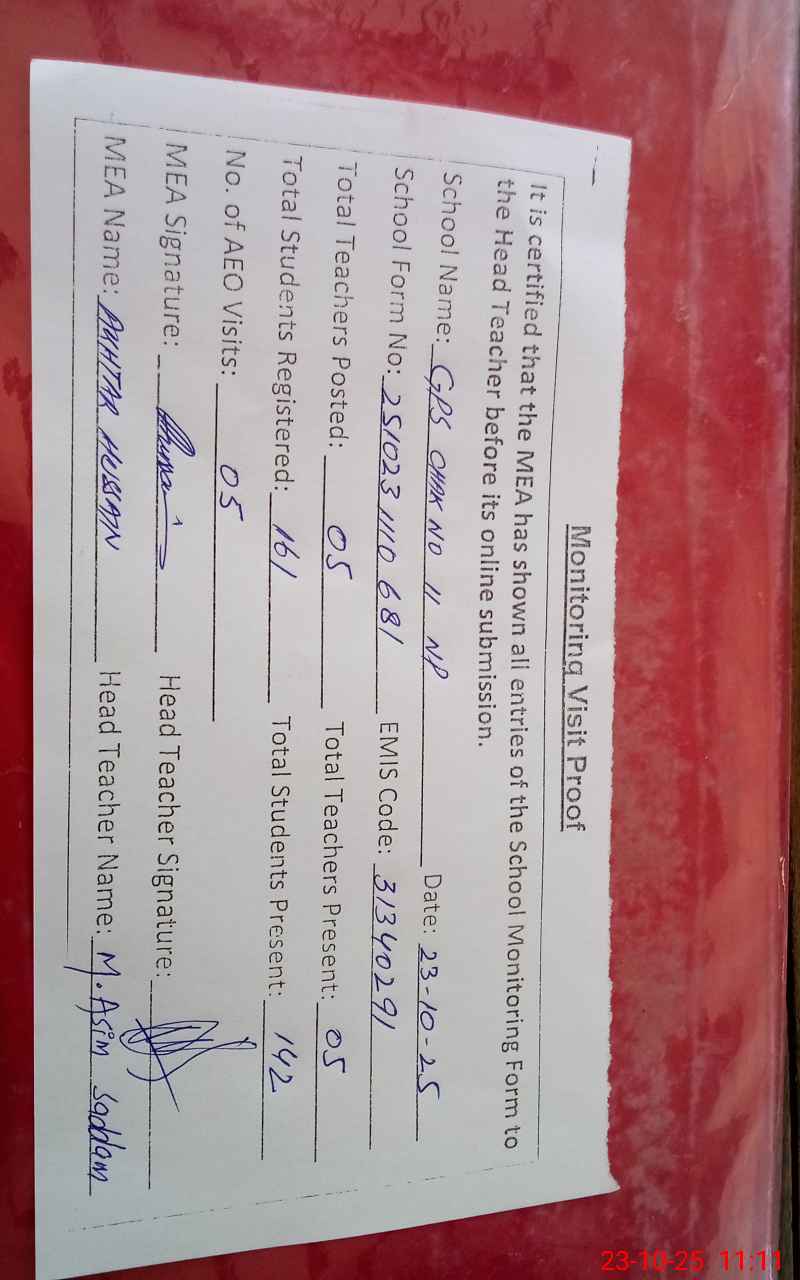 Monitoring Visit Proof
It is certified that the MEA has shown all entries of the School Monitoring Form to
the Head Teacher before its online submission.
School Name: GPS CHAK NO 11 NP Date: 23-10-25
School Form No: 251023 1110 681 EMIS Code: 31340291
Total Teachers Posted: 05 Total Teachers Present: 05
Total Students Registered: 161 Total Students Present: 142
No. of AEO Visits: 05
MEA Signature: Head Teacher Signature:
MEA Name: AKHTAR HUSSAIN Head Teacher Name: M. Asim Saddam
23-10-25 11:11